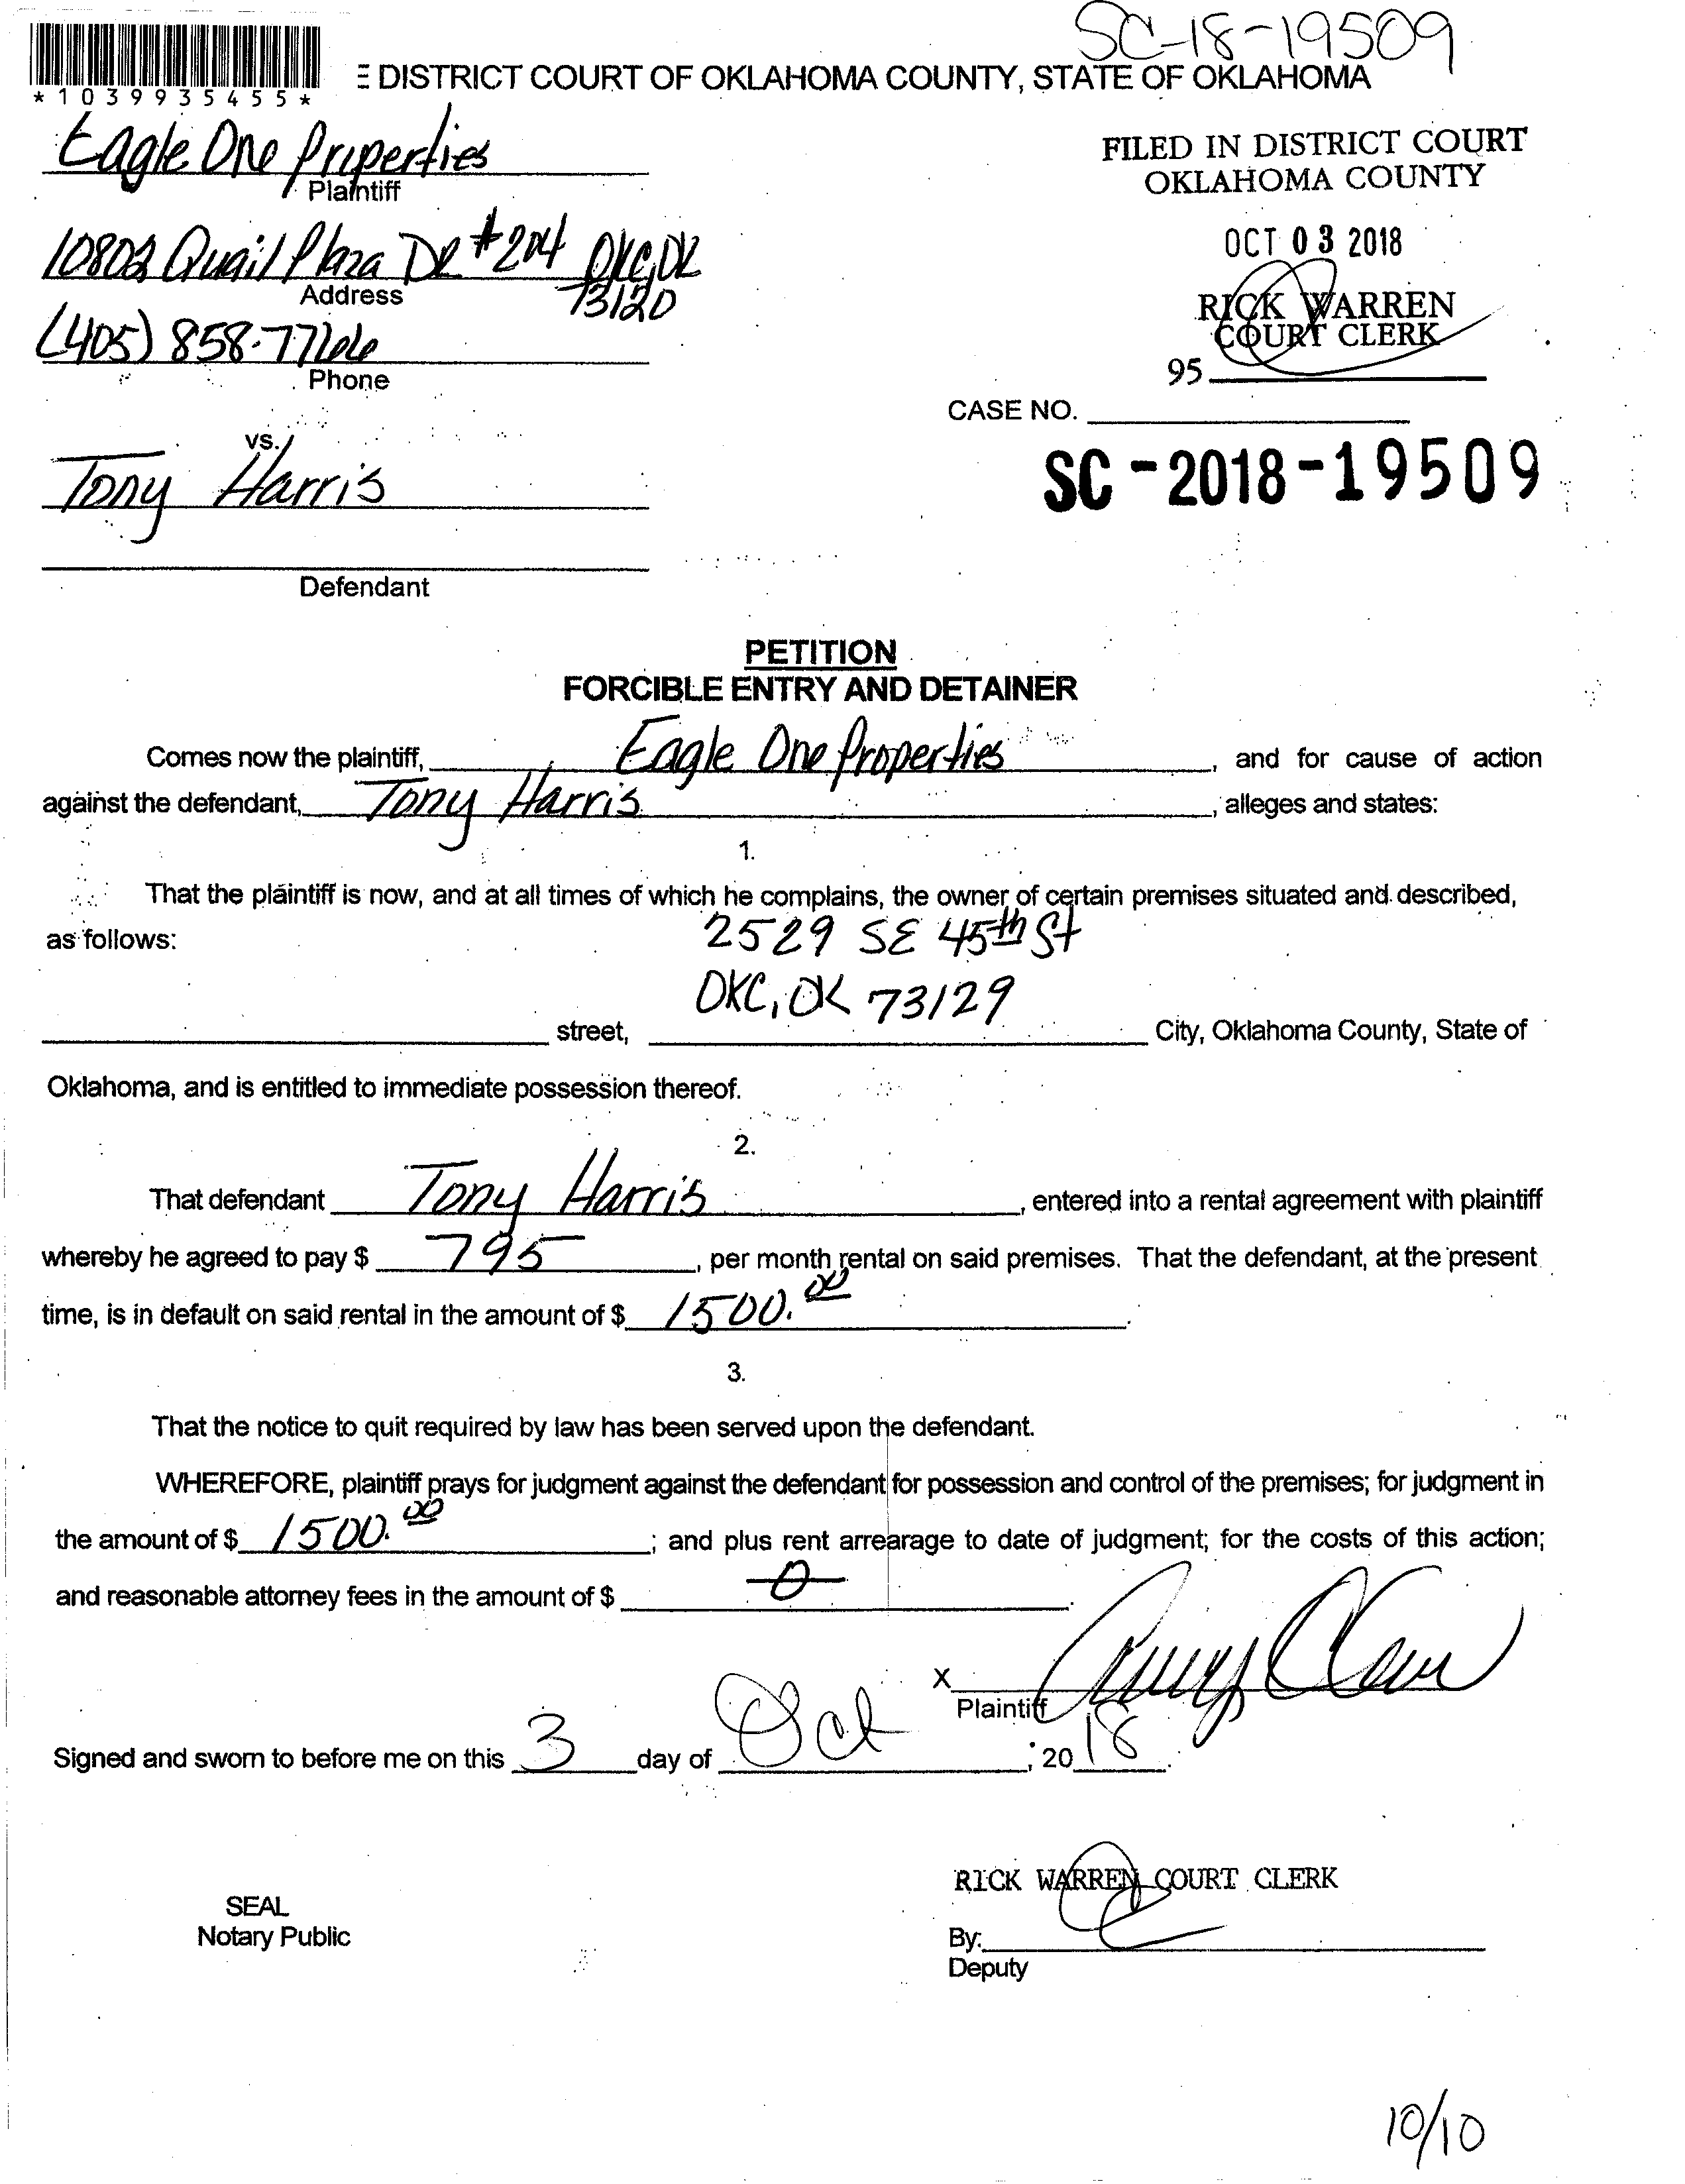 SC-18-19509
*1039935455*
E DISTRICT COURT OF OKLAHOMA COUNTY, STATE OF OKLAHOMA
Eagle One Properties
Plaintiff
FILED IN DISTRICT COURT
OKLAHOMA COUNTY
OCT 03 2018
RICK WARREN
COURT CLERK
95
10802 Quail Plaza DR #204 OKC, OK
73120
Address
(405) 858-7766
Phone
CASE NO.
SC-2018-19509
vs.
Tony Harris
Defendant
PETITION
FORCIBLE ENTRY AND DETAINER
Comes now the plaintiff, Eagle One Properties, and for cause of action
against the defendant, Tony Harris, alleges and states:
1.
That the plaintiff is now, and at all times of which he complains, the owner of certain premises situated and described,
as follows: 2529 SE 45th St
OKC, OK 73129
street, City, Oklahoma County, State of
Oklahoma, and is entitled to immediate possession thereof.
2.
That defendant Tony Harris, entered into a rental agreement with plaintiff
whereby he agreed to pay $ 795, per month rental on said premises. That the defendant, at the present
time, is in default on said rental in the amount of $ 1500.00.
3.
That the notice to quit required by law has been served upon the defendant.
WHEREFORE, plaintiff prays for judgment against the defendant for possession and control of the premises; for judgment in
the amount of $ 1500.00; and plus rent arrearage to date of judgment; for the costs of this action;
and reasonable attorney fees in the amount of $ 0.
X
Plaintiff
Signed and sworn to before me on this 3 day of Oct, 2018.
RICK WARREN COURT CLERK
SEAL
Notary Public
By:
Deputy
10/10